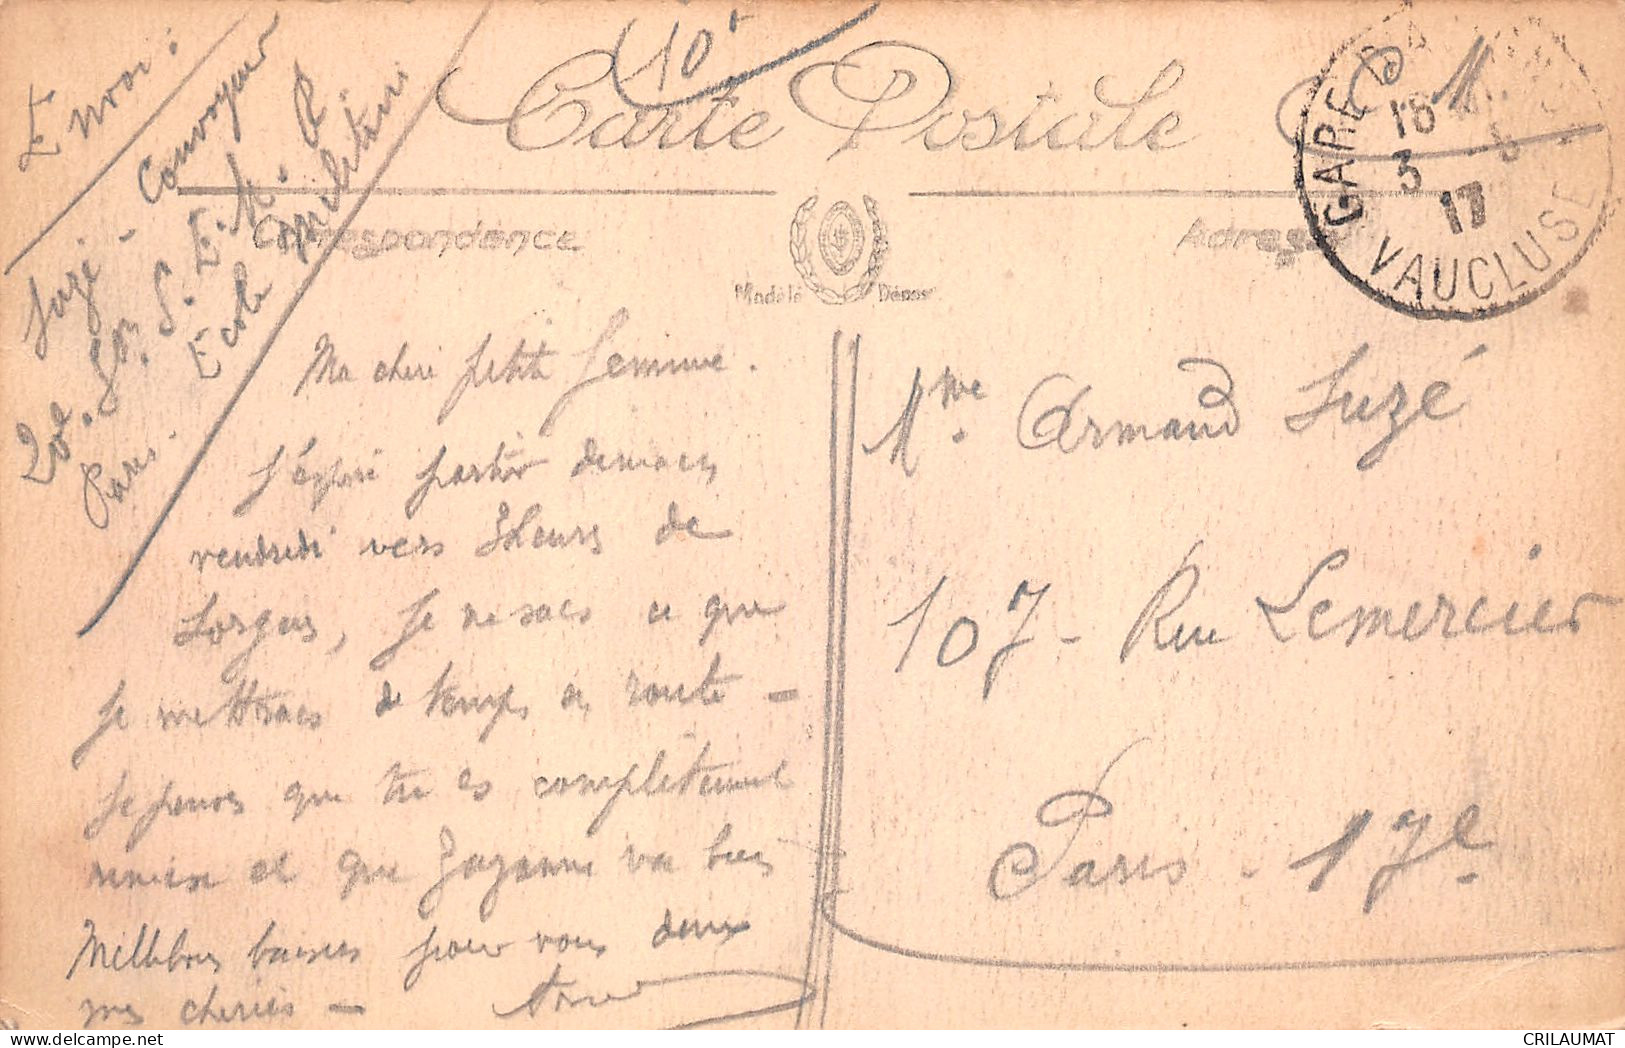 Envoi :
Suzé - Convoyeur
20e. Son. S. E. M. R.
Ecole Militaire
Paris.
10
Carte Postale
Correspondance
Adresse
Modèle Dépos
GARE D
18
3 - 8
17
VAUCLUSE
Ma chère petite femme.
J'espère partir demain
vendredi vers 3heures de
Sorgues, je ne sais ce que
je mettrais de temps en route -
Je pense que tu es complètement
remise et que Suzanne va bien
Mille bons baisers pour vous deux
mes chéries -
Mme. Armand Suzé
107 - Rue Lemercier
Paris - 17e
CRILAUMAT